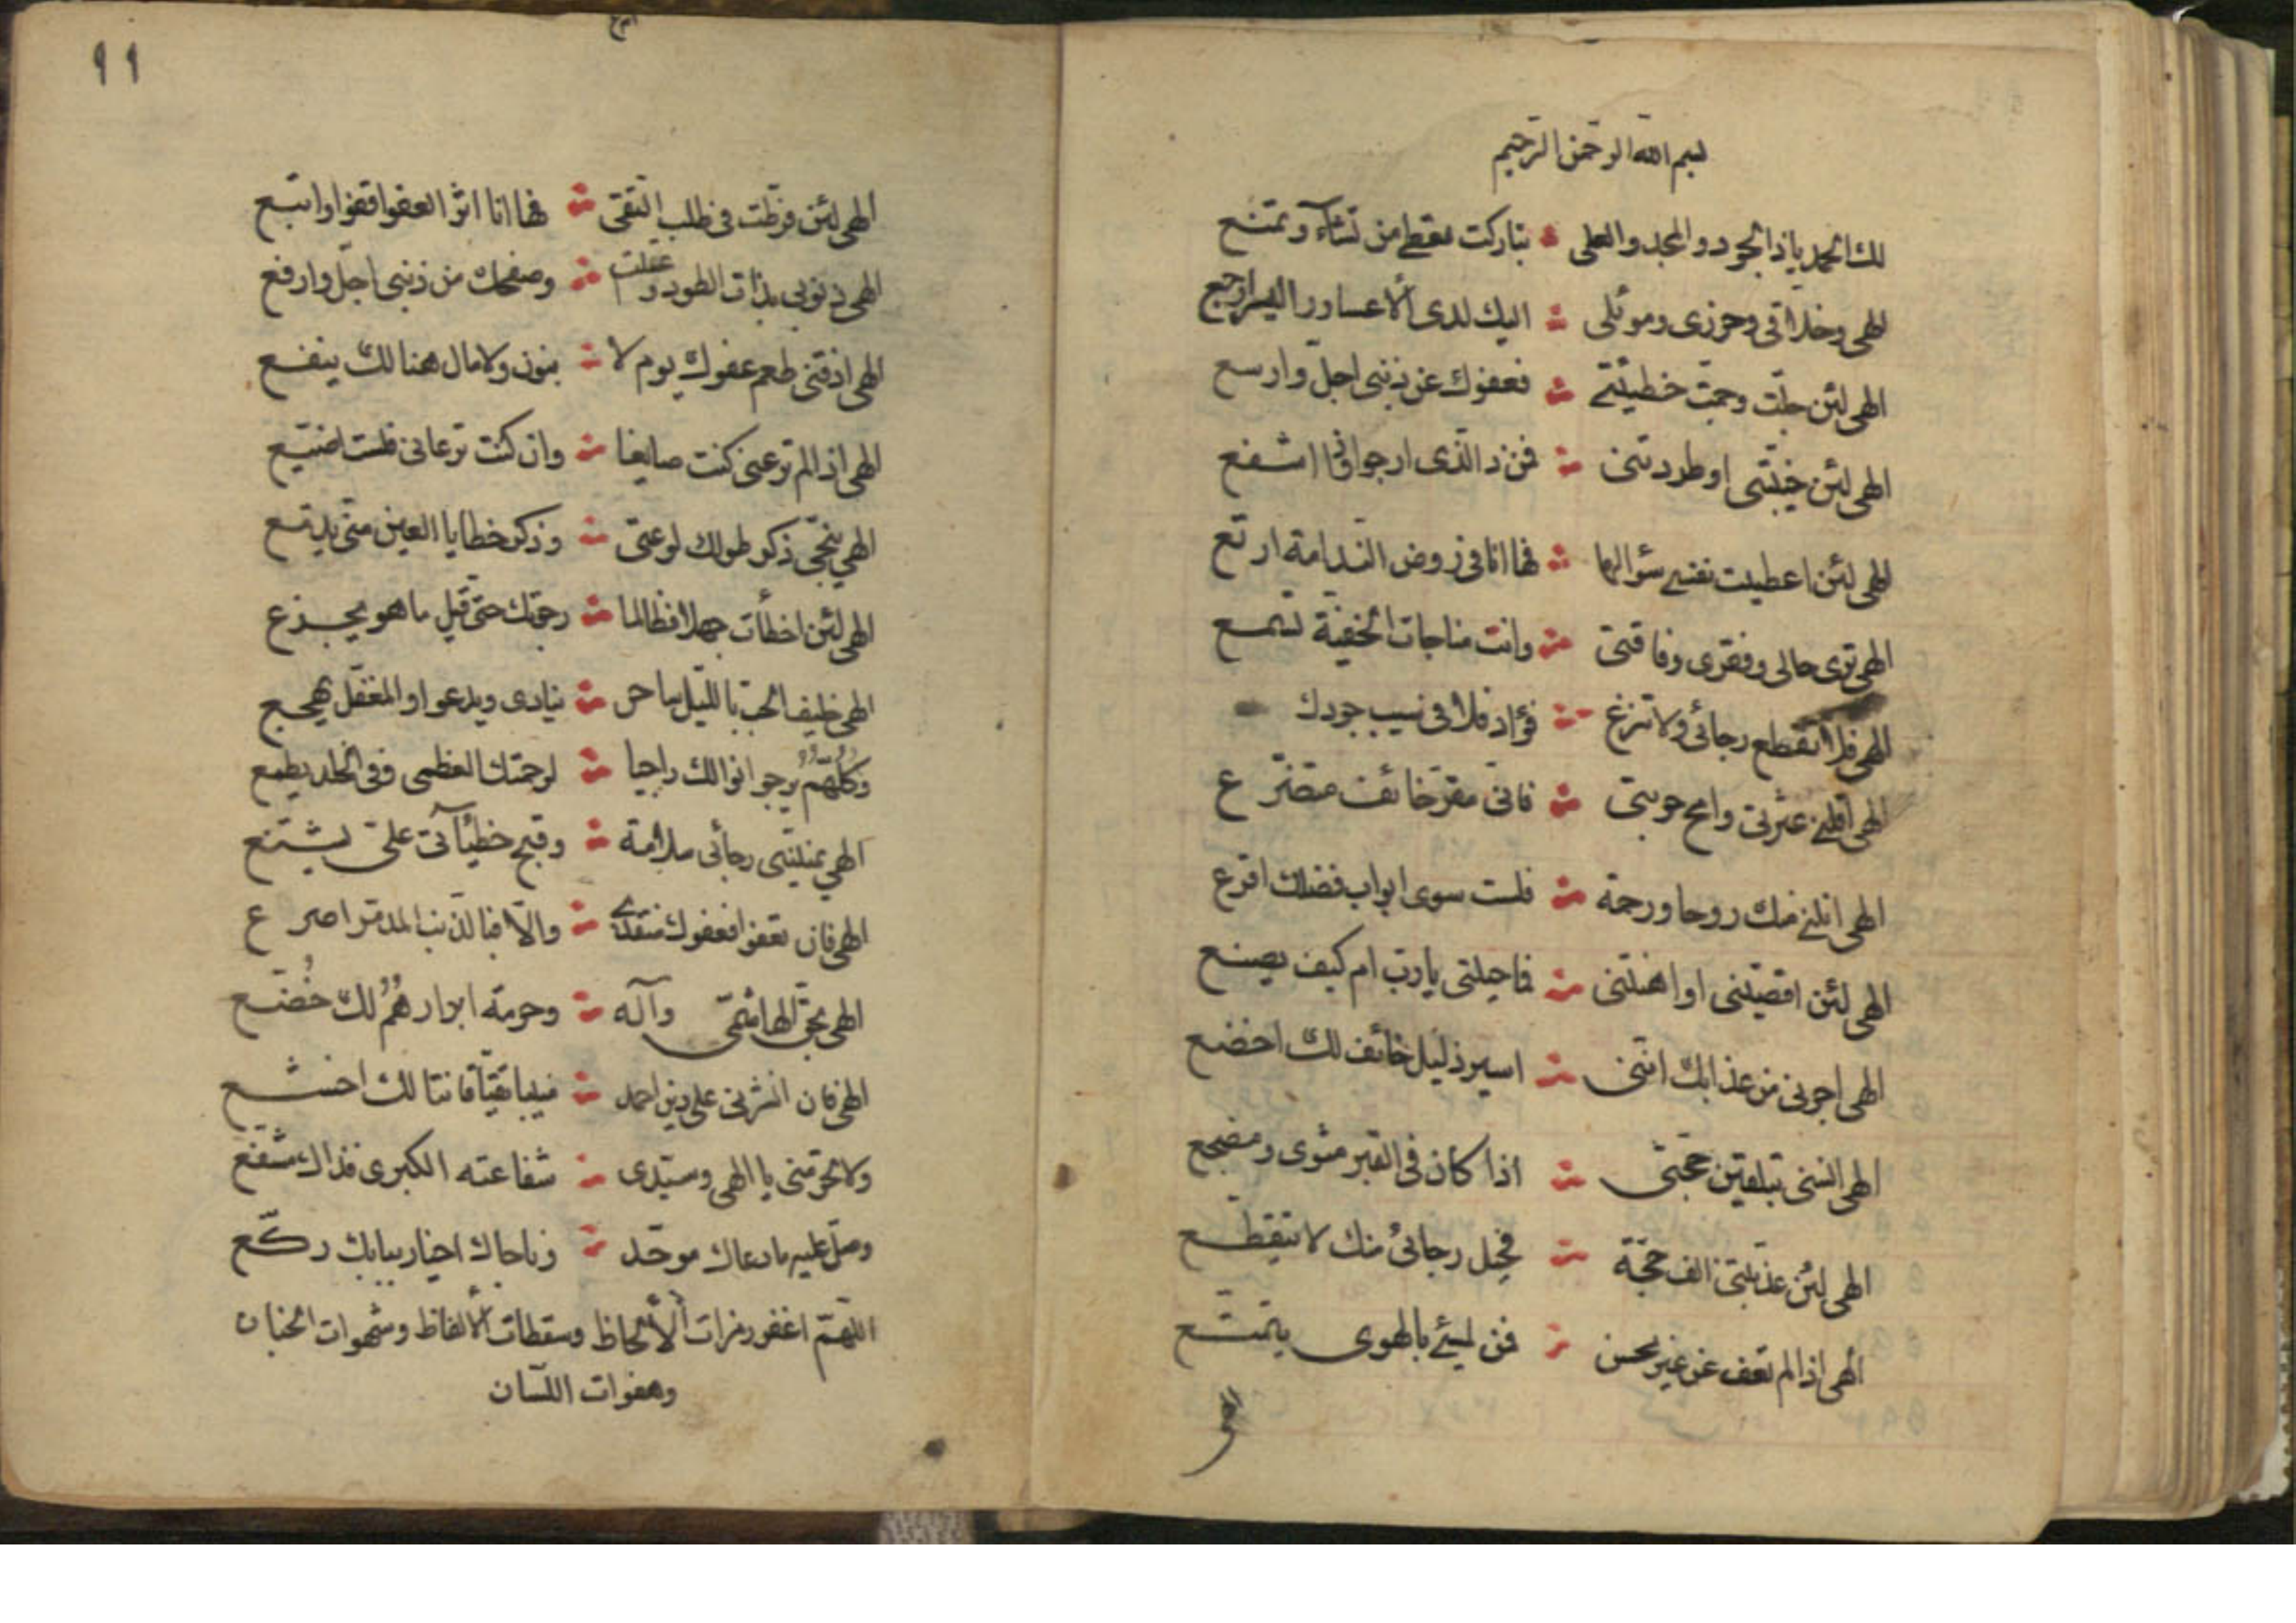 بسم الله الرحمن الرحيم
لك الحمد يا ذا الجود والمجد والعلى تباركت تعطى من تشآء وتمنع
الهى وخلاقى وحرزى وموئلى اليك لدى الأعسار واليسر ارجع
الهى لئن جلّت وجمّت خطيئتى فعفوك عن ذنبى اجلّ واوسع
الهى لئن خيّبتنى او طردتنى فمن ذا الّذى ارجوا
الهى لئن اعطيت نفسى سؤالها فها انا فى روض النّدامة ارتع
الهى ترى حالى وفقرى وفاقتى وانت مناجات الخفيّة تسمع
الهى فلا تقطع رجائى ولا تزغ فؤادى فلى فى سيب جودك
الهى اقلنى عثرتى وامح حوبتى فانّى مقرّ خائف متضرّع
الهى انلنى منك روحا ورحمة فلست سوى ابواب فضلك اقرع
الهى لئن اقصيتنى او اهنتنى فما حيلتى يا ربّ ام كيف يصنع
الهى اجرنى من عذابك انّنى اسير ذليل خائف لك اخضع
الهى انسنى بتلقين حجّتى اذا كان فى القبر مثوى ومضجع
الهى لئن عذّبتنى الف حجّة فحبل رجائى منك لا يتقطّع
الهى اذا لم تعف عن غير محسن فمن لمسئ بالهوى يتمتّع
الهى
٩٩
الهى لئن فرّطت فى طلب التّقى فها انا اثر العفو اقفوا واتبع
الهى ذنوبى بذّت الطود وعلت وصفحك من ذنبى اجلّ وارفع
الهى اذقنى طعم عفوك يوم لا بنون ولا مال هنالك ينفع
الهى اذا لم ترعنى كنت ضايعا وان كنت ترعانى فلست اضيّع
الهى ينجّى ذكر طولك لوعتى وذكر خطايا العين منّى يدمع
الهى لئن اخطأت جهلا فطالما رجوتك حتّى قيل ما هو يجزع
الهى حليف الحبّ باللّيل ساهر ينادى ويدعوا والمغفّل يهجع
وكلّهم يرجوا نوالك راجيا لرحمتك العظمى وفى الخلد يطمع
الهى يمنّينى رجائى سلامة وقبح خطيآتى علىّ يشنّع
الهى فان تعفوا فعفوك منقذى والّا فبالذّنب المدمّر اصرع
الهى بحقّ الهاشمىّ وآله وحرمة ابرار هم لك خضّع
الهى فان انشرنى على دين احمد منيبا تقيّا قانتا لك اخشع
ولا تحرمنى يا الهى وسيّدى شفاعته الكبرى فذاك مشفّع
وصلّ عليه ما دعاك موحّد وناجاك اخيار ببابك ركّع
اللّهمّ اغفر رمزات الألحاظ وسقطات الألفاظ وشهوات الجنان
وهفوات اللّسان